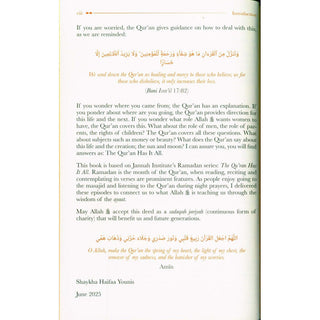 xii Introduction
If you are worried, the Qur'an gives guidance on how to deal with this,
as we are reminded:
وَنُنَزِّلُ مِنَ الْقُرْءَانِ مَا هُوَ شِفَآءٌ وَرَحْمَةٌ لِّلْمُؤْمِنِينَ وَلَا يَزِيدُ الظَّٰلِمِينَ إِلَّا
خَسَارًا
We send down the Qur'an as healing and mercy to those who believe; as for
those who disbelieve, it only increases their loss.
(Bani Isra'il 17:82)
If you wonder where you came from; the Qur'an has an explanation. If
you ponder about where are you going; the Qur'an provides direction for
this life and the next. If you wonder what role Allah ﷻ wants women to
have, the Qur'an covers this. What about the role of men, the role of par-
ents, the rights of children? The Qur'an covers all these questions. What
about subjects such as money or beauty? What does the Qur'an say about
this life and the creation; the sun and moon? I can assure you, you will find
answers as: The Qur'an Has It All.
This book is based on Jannah Institute's Ramadan series: The Qur'an Has
It All. Ramadan is the month of the Qur'an, when reading, reciting and
contemplating its verses are prominent features. As people enjoy going to
the masajid and listening to the Qur'an during night prayers, I delivered
these episodes to connect us to what Allah ﷻ is teaching us through the
wisdom of the quest.
May Allah ﷻ accept this deed as a sadaqah jariyah (continuous form of
charity) that will benefit us and future generations.
اللَّهُمَّ اجْعَلِ الْقُرْآنَ رَبِيعَ قَلْبِي وَنُورَ صَدْرِي وَجَلَاءَ حُزْنِي وَذَهَابَ هَمِّي
O Allah, make the Qur'an the spring of my heart, the light of my chest, the
remover of my sadness, and the banisher of my worries.
Amin
Shaykha Haifaa Younis
June 2025